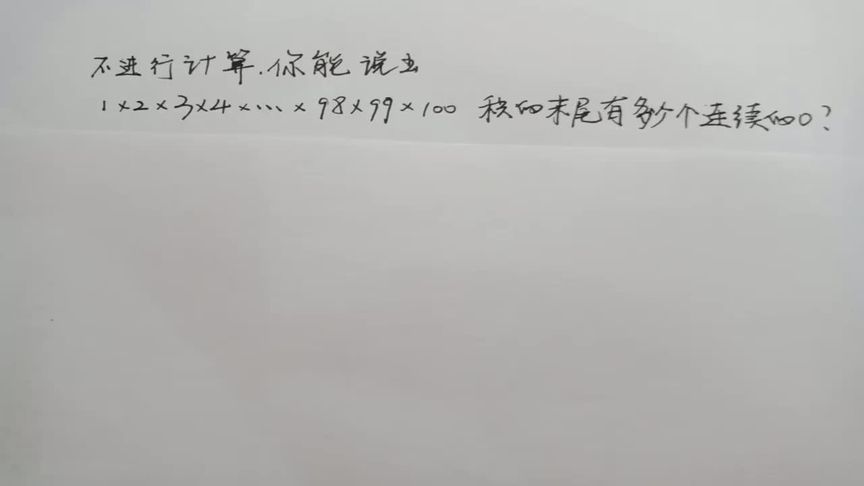 不进行计算.你能说出
1×2×3×4×…×98×99×100 积的末尾有多少个连续的0?